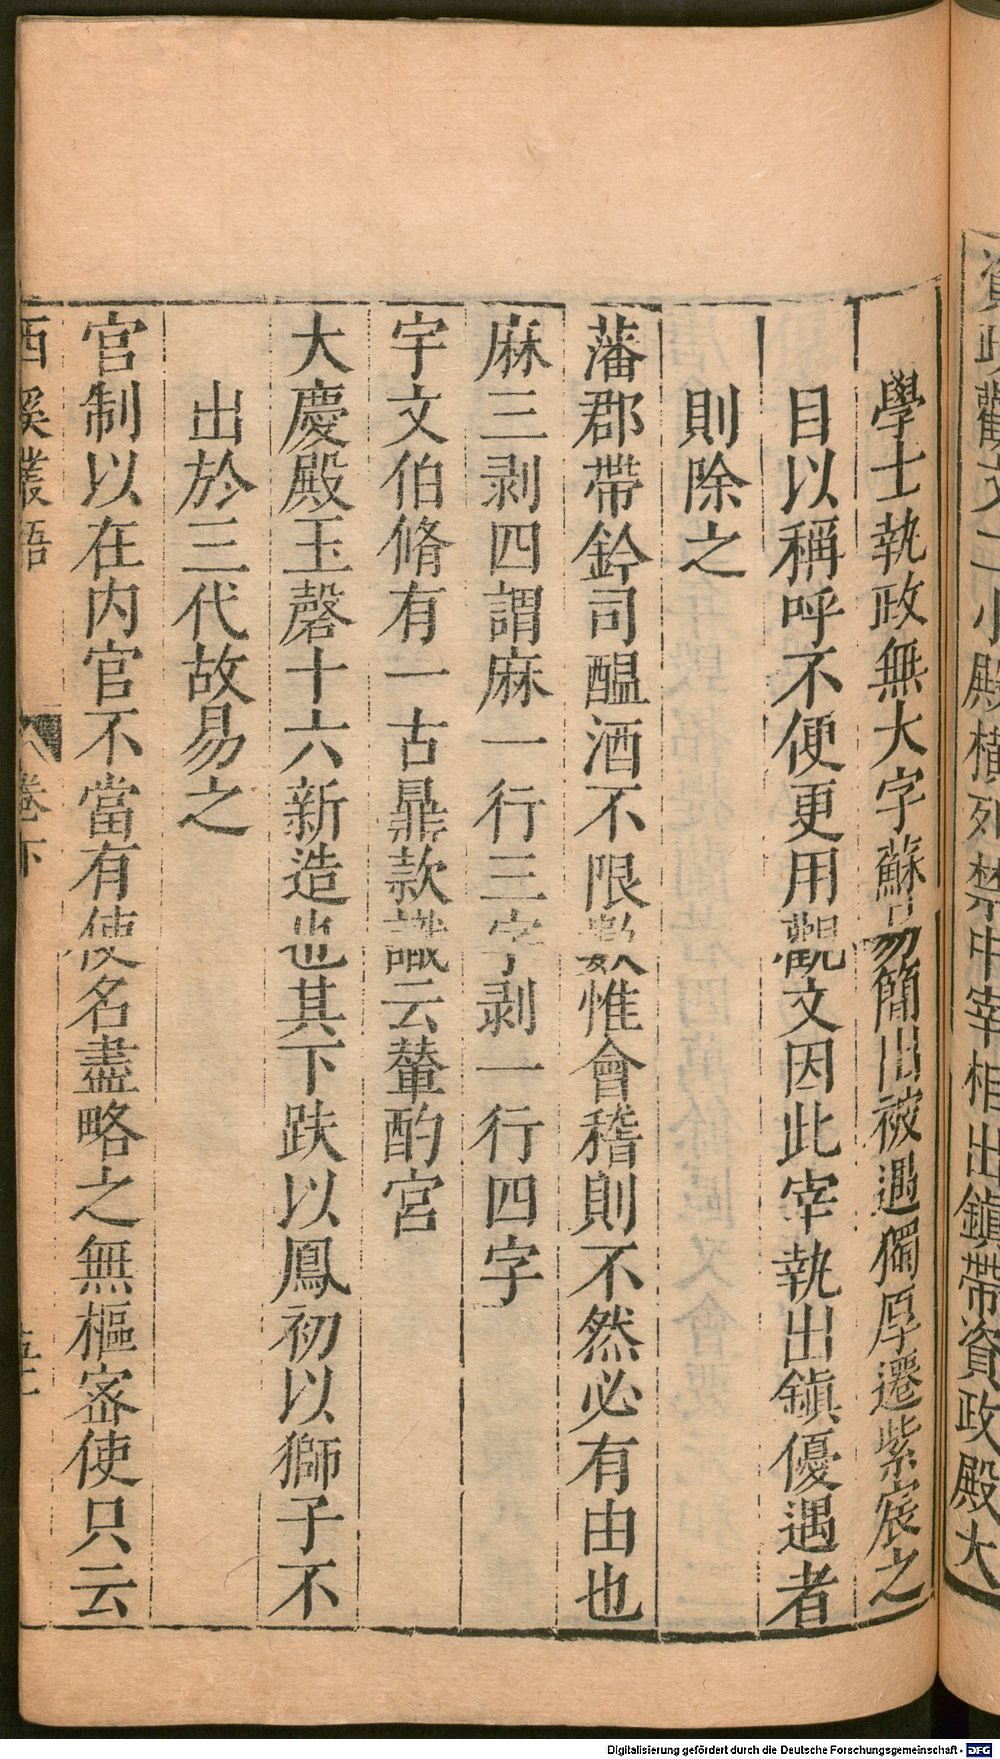 資政觀文二小殿横列禁中宰相出鎮帶資政殿大
學士執政無大字蘇易簡出被遇獨厚遷紫宸之
目以稱呼不便更用觀文因此宰執出鎮優遇者
則除之
藩郡帶鈐司醖酒不限數惟會稽則不然必有由也
麻三剥四謂麻一行三字剥一行四字
宇文伯脩有一古鼎款識云輦酌宮
大慶殿玉磬十六新造也其下趺以鳳初以獅子不
出於三代故易之
官制以在内官不當有使名盡略之無樞宻使只云
西溪叢語
卷下
五十
Digitalisierung gefördert durch die Deutsche Forschungsgemeinschaft - DFG